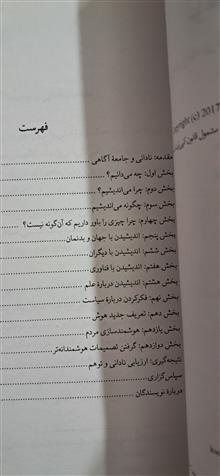 Copyright (c) 2017
مشمول قانون
فهرست
مقدمه: نادانی و جامعهٔ آگاهی
بخش اول: چه می‌دانیم؟
بخش دوم: چرا می‌اندیشیم؟
بخش سوم: چگونه می‌اندیشیم
بخش چهارم: چرا چیزی را باور داریم که آن‌گونه نیست؟
بخش پنجم: اندیشیدن با جهان و بدنمان
بخش ششم: اندیشیدن با دیگران
بخش هفتم: اندیشیدن با فناوری
بخش هشتم: اندیشیدن دربارهٔ علم
بخش نهم: فکرکردن دربارهٔ سیاست
بخش دهم: تعریف جدید هوش
بخش یازدهم: هوشمندسازی مردم
بخش دوازدهم: گرفتن تصمیمات هوشمندانه‌تر
نتیجه‌گیری: ارزیابی نادانی و توهم
سپاس‌گزاری
دربارهٔ نویسندگان